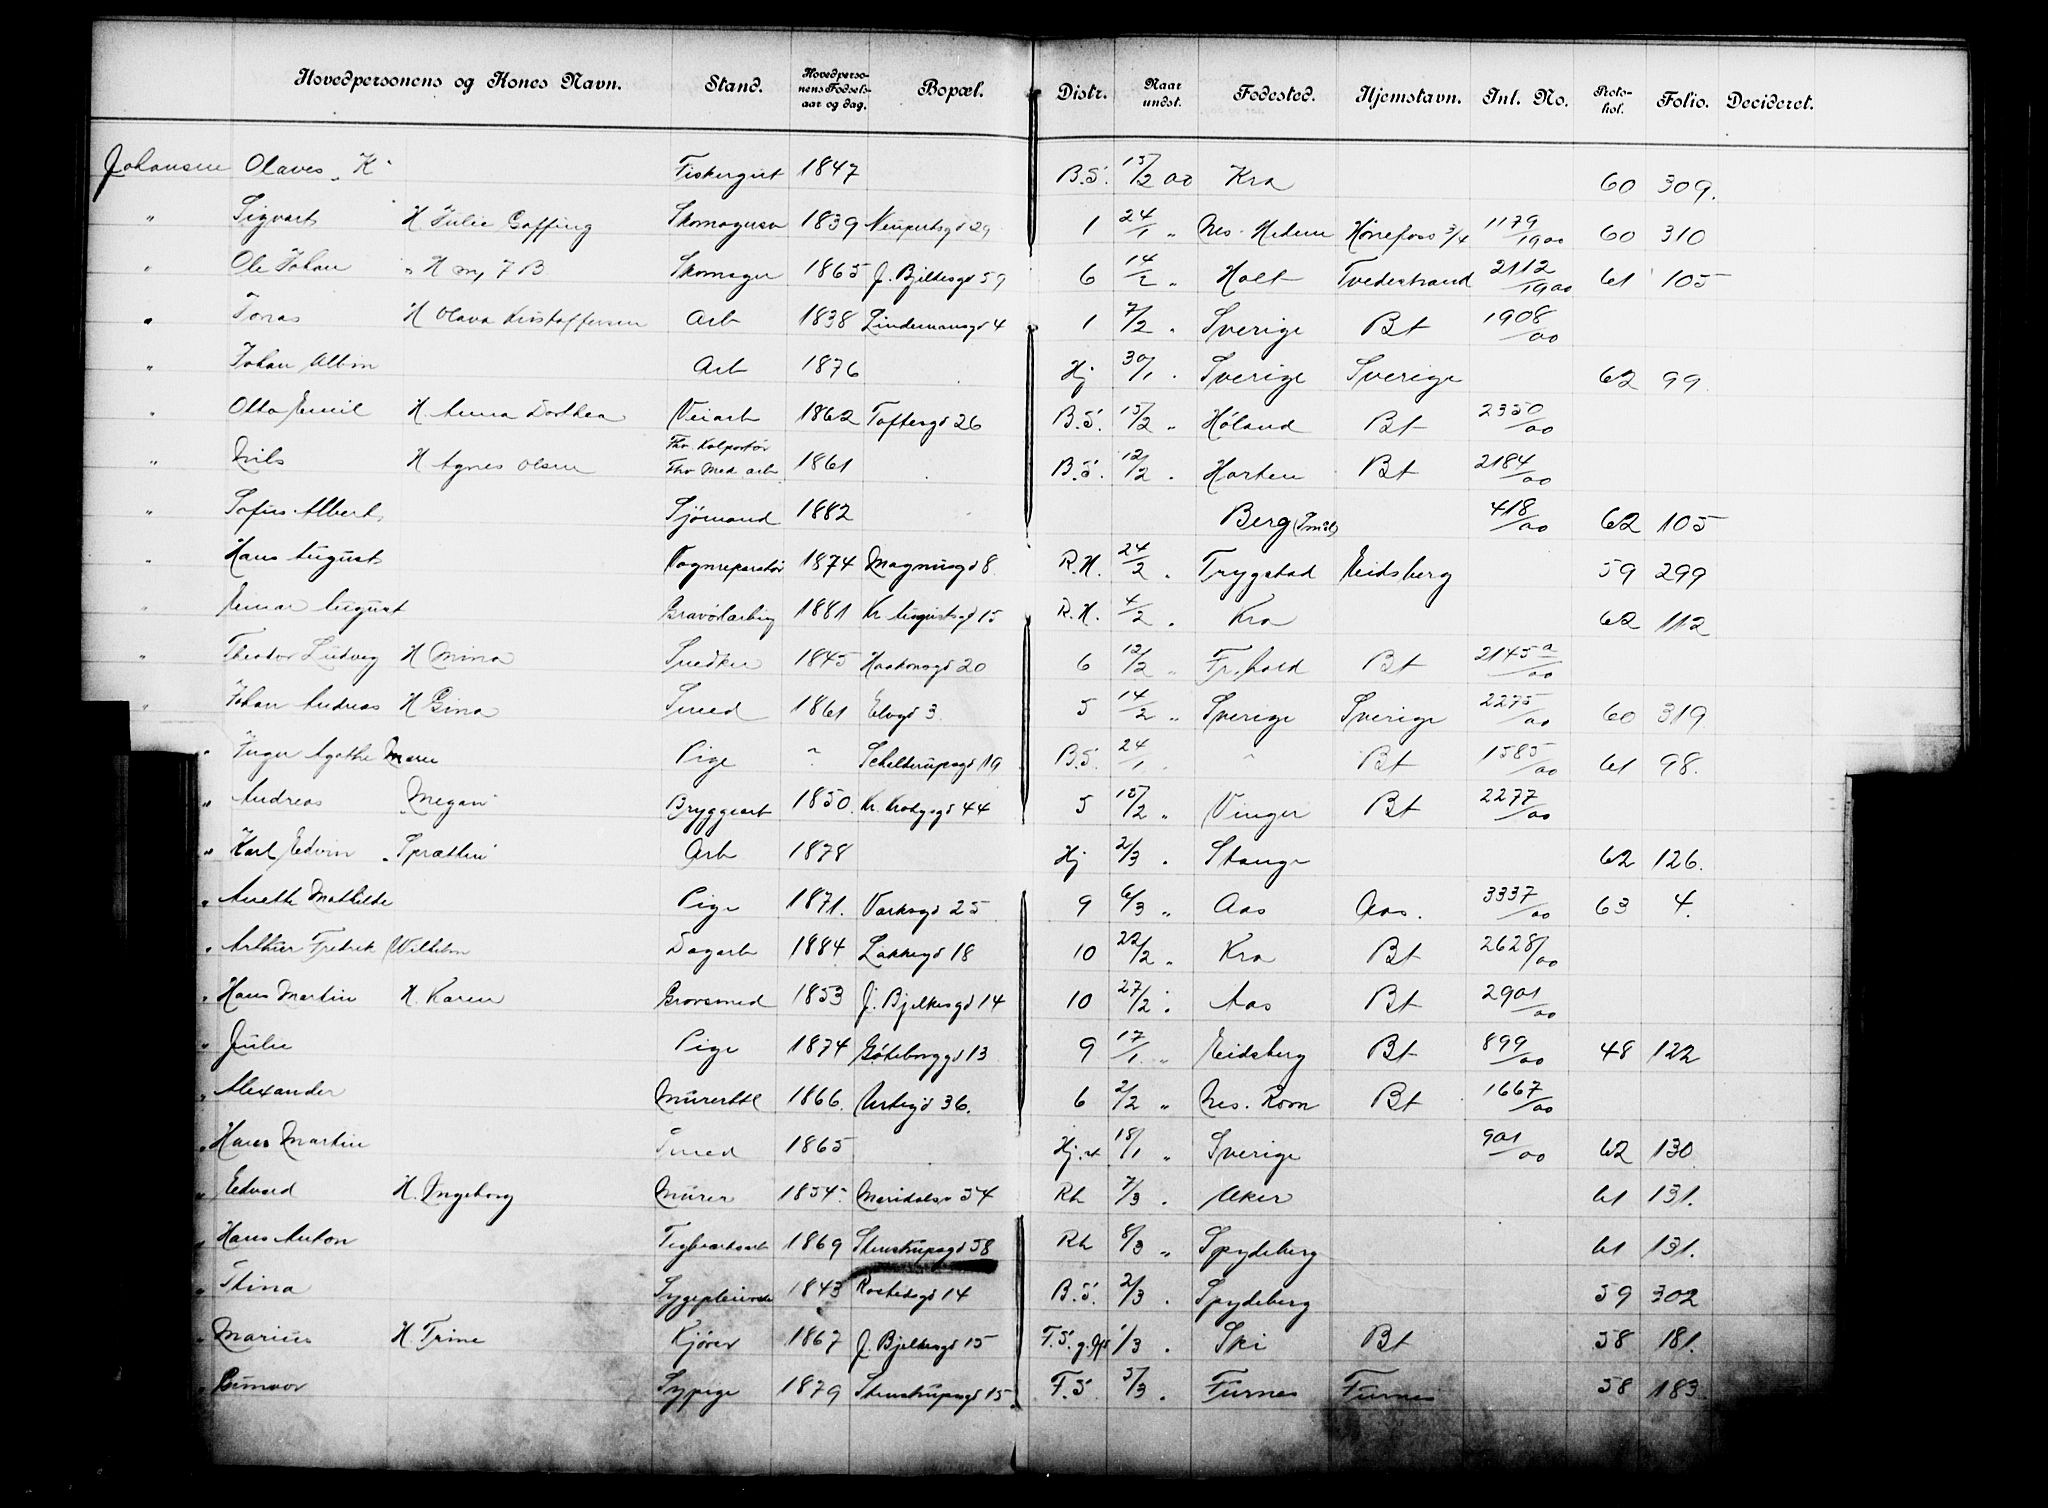 Hovedpersonens og Kones Navn. Stand. Hovedpersonens Fødselsaar og dag. Bopæl. Distr. Naar undst. Fødested. Hjemstavn. Inl. No. Protokol. Folio. Decideret.
Johansen Olaves „K“ Fiskergut 1847 B.S. 15/2 00 Kra 60 309.
„ Sigvart H Julie Gaffing Skomagersv 1839 Neupertsgd 29 1 24/1 „ Nes. Hedem Hønefoss 3/4 1179/1900 60 310
„ Ole Johan Skomager 1865 J. Bjelkesgd 59 6 14/2 „ Holt Tvedestrand 2112/1900 61 105
„ Jonas H Olava Kristoffersen Arb 1838 Lindemansgd 4 1 7/2 „ Sverige Bt 1908/00
„ Johan Albin Arb 1876 Hj 30/1 „ Sverige Sverige 62 99
„ Otto Emil H. Anna Dorthea Veiarb 1862 Toftesgd 26 B.S. 15/2 „ Høland Bt 2350/00
„ Nils H Agnes Olsen Fhv Kolportør Fhv Med arb 1861 B.S. 12/2 „ Horten Bt 2184/00
„ Sofus Albert Sjømand 1882 Berg (Smål) 418/00 62 105
„ Hans August Vognreparatør 1874 Magnusgd 8 R.H. 24/2 „ Trygstad Eidsberg 59 299
„ Einar August Gravørlærling 1881 Kr Augustsgt 15 R.H. 4/2 „ Kra 62 112
„ Theodor Ludvig H Mina Snedker 1845 Haakonsgd 20 6 12/2 „ Fr.hald Bt 2145 a/00
„ Johan Andreas H Gina Smed 1861 Elvgd 3 5 14/2 „ Sverige Sverige 2275/00 60 319
„ Inger Agathe Marie Pige Schilderupsgd 19 B.S. 24/1 Bt 1585/00 61 98.
„ Andreas „Megan“ Bryggearb 1850. Kr. Krohgsgd 44 5 15/2 „ Vinger Bt 2277/00
„ Karl Edvin „Sprætten“ Arb 1878 Hj 2/3 „ Stange 62 126.
„ Anette Mathilde Pige 1871. Verksgd 25 9 6/3 „ Aas Aas. 3337/00 63 4.
„ Arthur Fredrik Wilhelm Dagarb 1884 Lakkegd 18 10 22/2 „ Kra Bt 2628/00
„ Hans Martin H. Karen Grovsmed 1853 J. Bjelkesgd 14 10 27/2 „ Aas Bt 2901/00
„ Julie Pige 1874 Gøteborggd 13 9 17/1 „ Eidsberg Bt 899/00 48 122
„ Alexander 1866. Urtegd 36. 6 2/2 „ Nes. Rom Bt 1667/00
„ Hans Martin Smed 1865 Hj. 18/1 „ Sverige 901/00 62 130
„ Edvard H. Ingeborg Murer 1854 Maridalsv 54 Rh 7/3 „ Aker 61 131.
„ Hans Anton Teglverksarb 1869 Stenstrupsgd 58 Rh 8/3 „ Spydeberg 61 131.
„ Stina Sygepleierske 1843 Rostedsgd 14 B.S. 2/3 „ Spydeberg 59 302
„ Marius H. Trine Kjører 1867 J. Bjelkesgd 15 F.S. 1/3 „ Ski Bt 58 181.
„ Gunvor Sypige 1879 Stenstrupsgd 15 F.S 5/3 „ Furnes Furnes 58 183